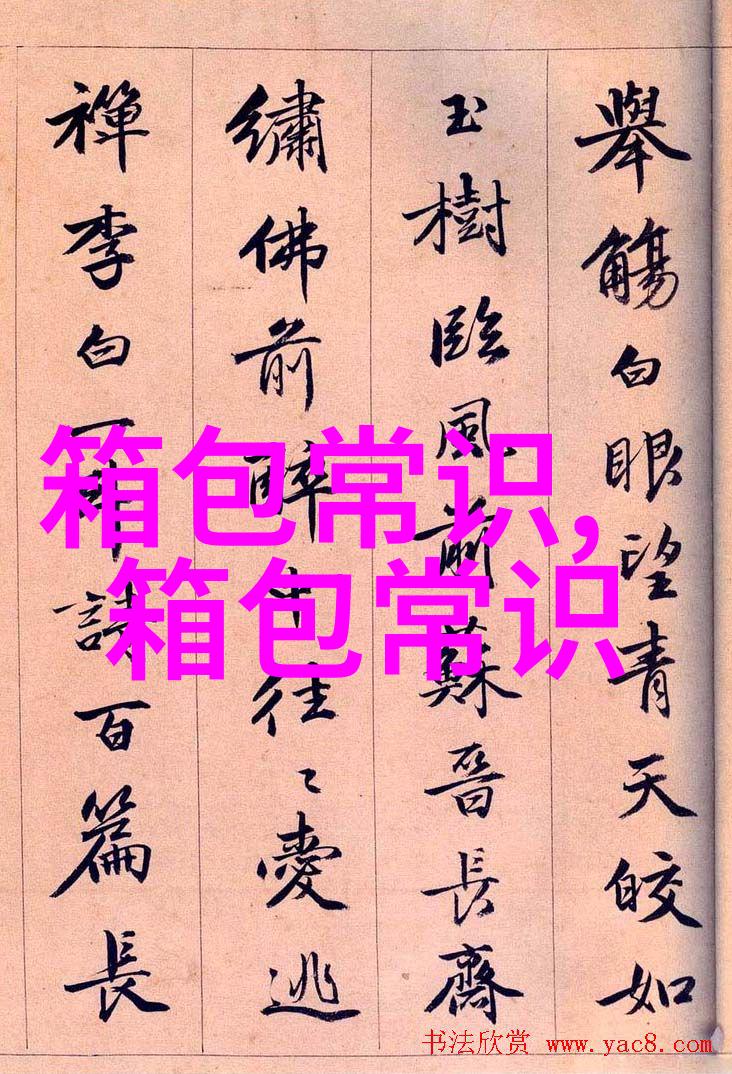 舉觴白眼望青天皎如
玉樹臨風前蘇晉長齋
繡佛前醉中往〻愛逃
禪李白一斗詩百篇長
箱包常识,
箱包常识
书法欣赏 www.yac8.com